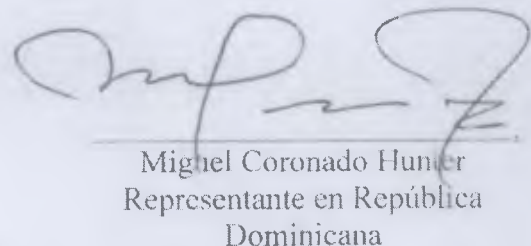 Miguel Coronado Hunter
Representante en República
Dominicana